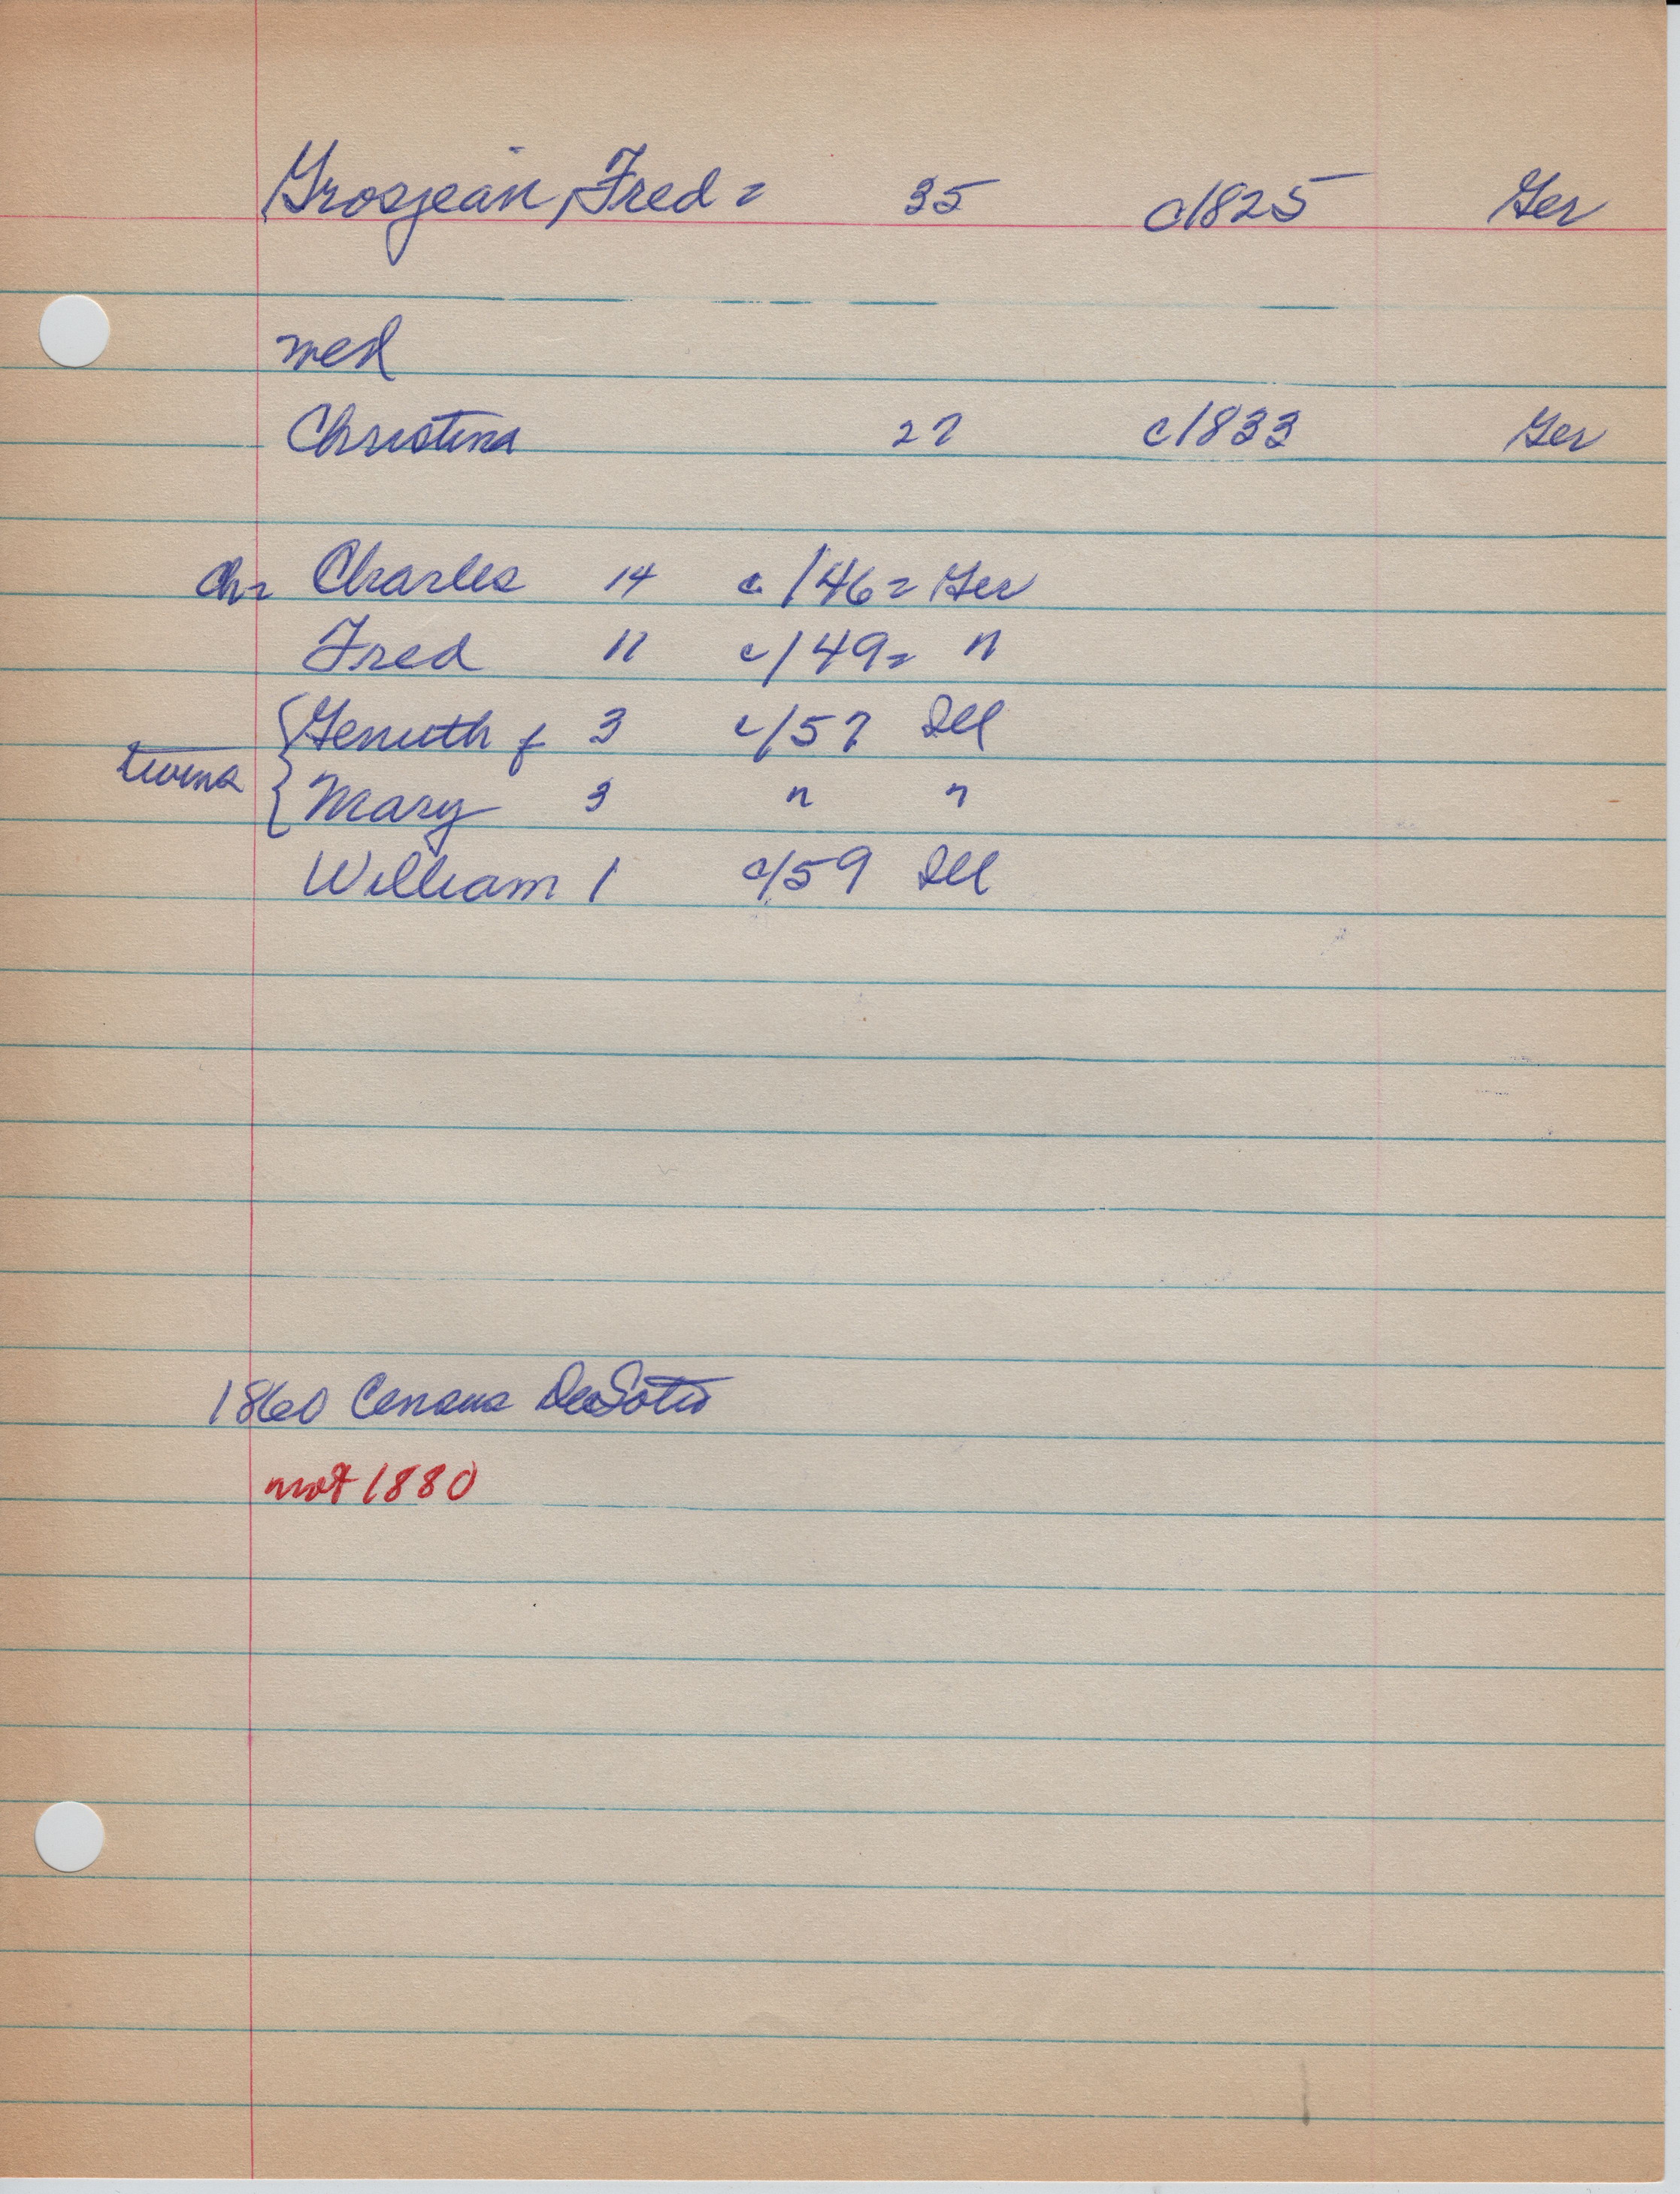 Grosjean, Fred = 35 c1825 Ger
med
Christina 27 c1833 Ger
Ch= Charles 14 c/46= Ger
Fred 11 c/49= "
twins { Genuth f 3 c/57 Ill
{ Mary 3 " "
William 1 c/59 Ill
1860 Census DeSoto
not 1880